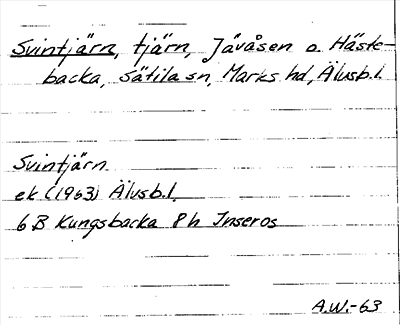 Svintjärn, tjärn, Jävåsen o. Häste-
backa, Sätila sn, Marks hd, Älvsb.l.
Svintjärn
ek (1963) Älvsb.l.
6B Kungsbacka 8h Inseros
A.W.-63